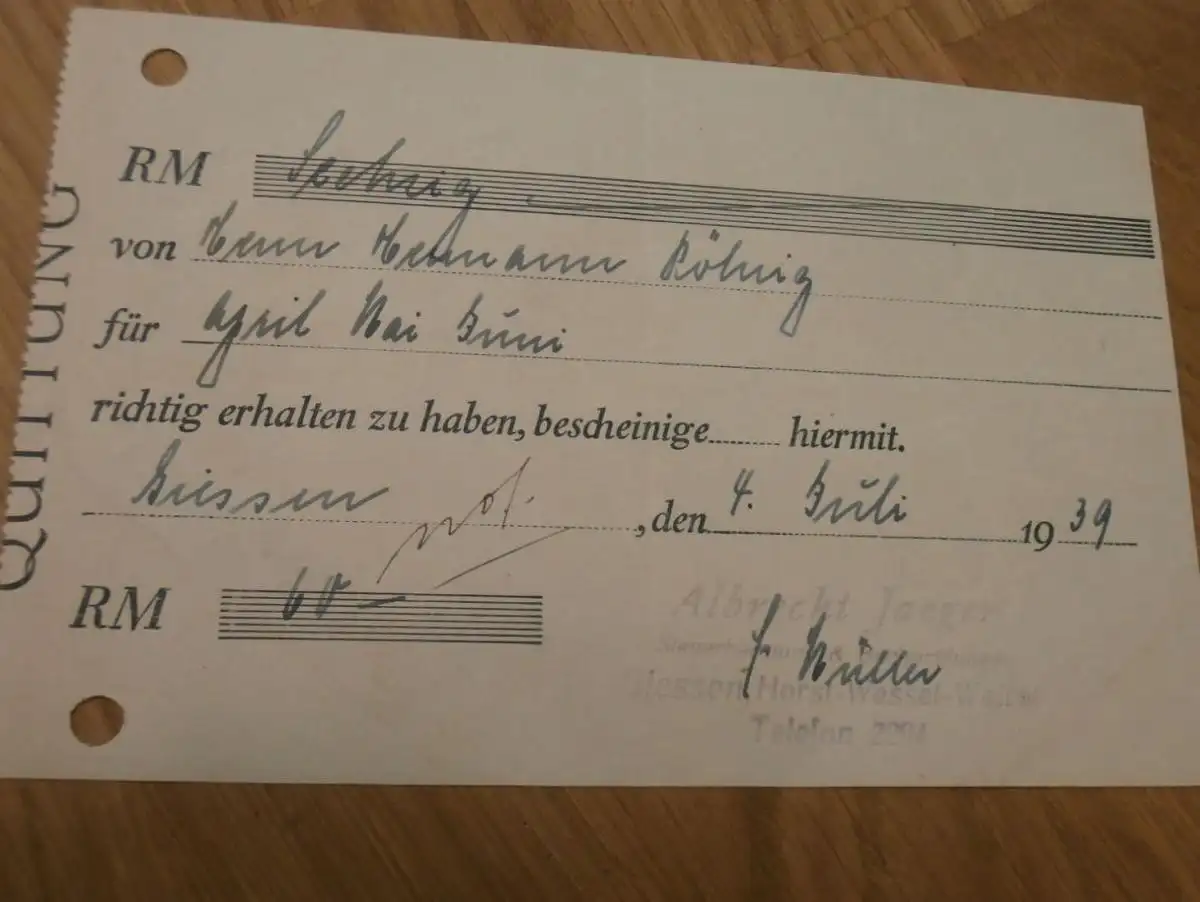 QUITTUNG
RM Sechzig
von Herrn Hermann Röhrig
für April Mai Juni
richtig erhalten zu haben, bescheinige hiermit.
Giessen, den 4. Juli 1939
RM 60 —
Albrecht Jaeger
F. Müller
Giessen, Horst-Wessel-Wall
Telefon